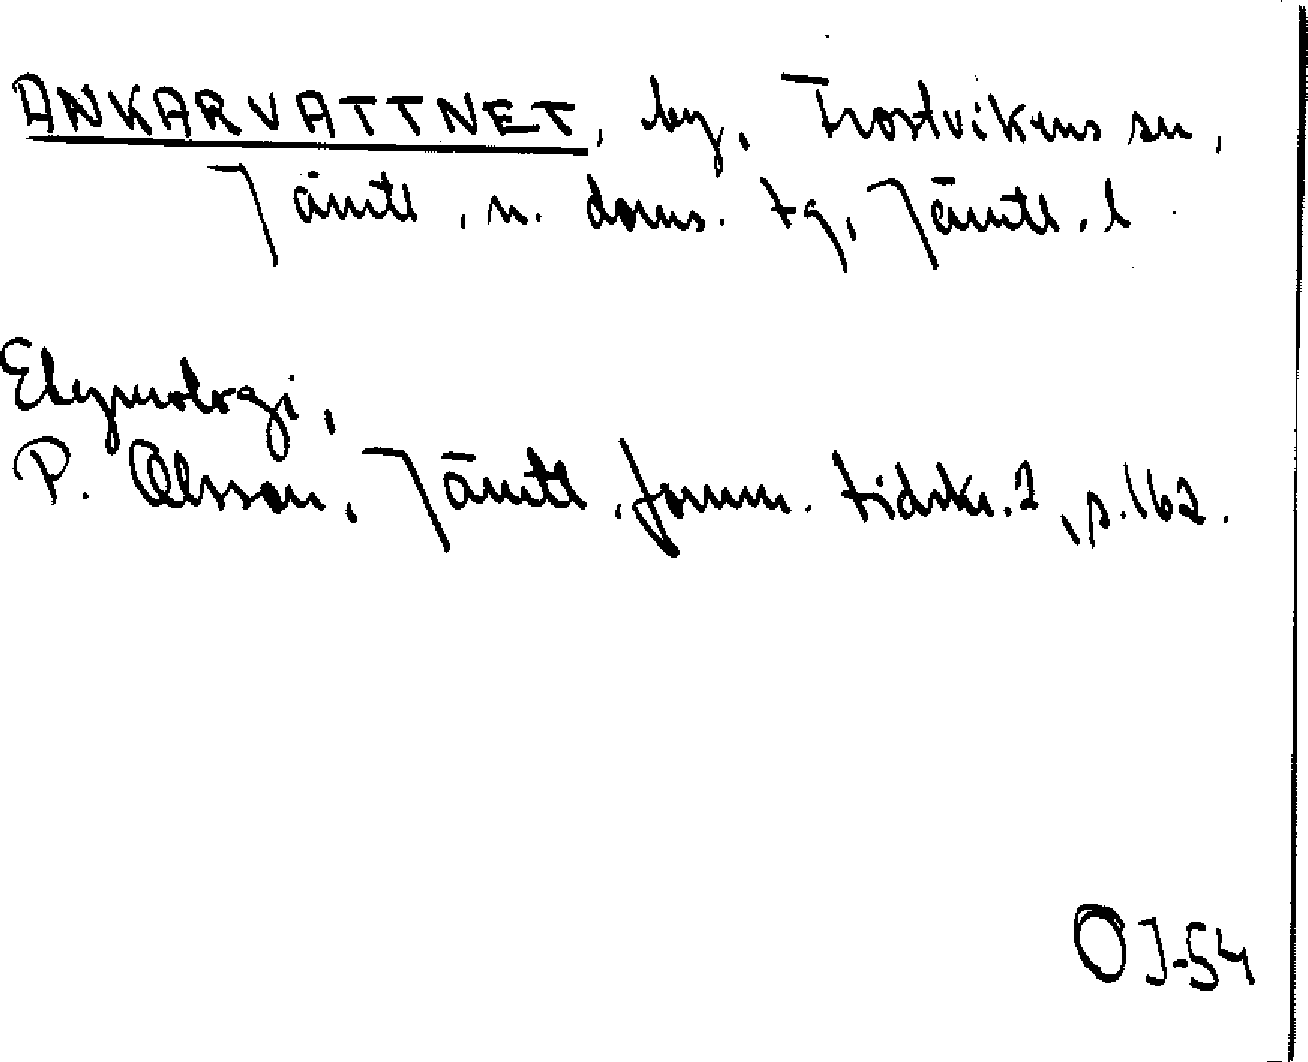 ANKARVATTNET, by, Frostvikens sn,
Jämtl. n. doms. tg, Jämtl. l.
Etymologi,
P. Olsson, Jämtl. fornm. tidskr. 2, s. 162.
OJ-54